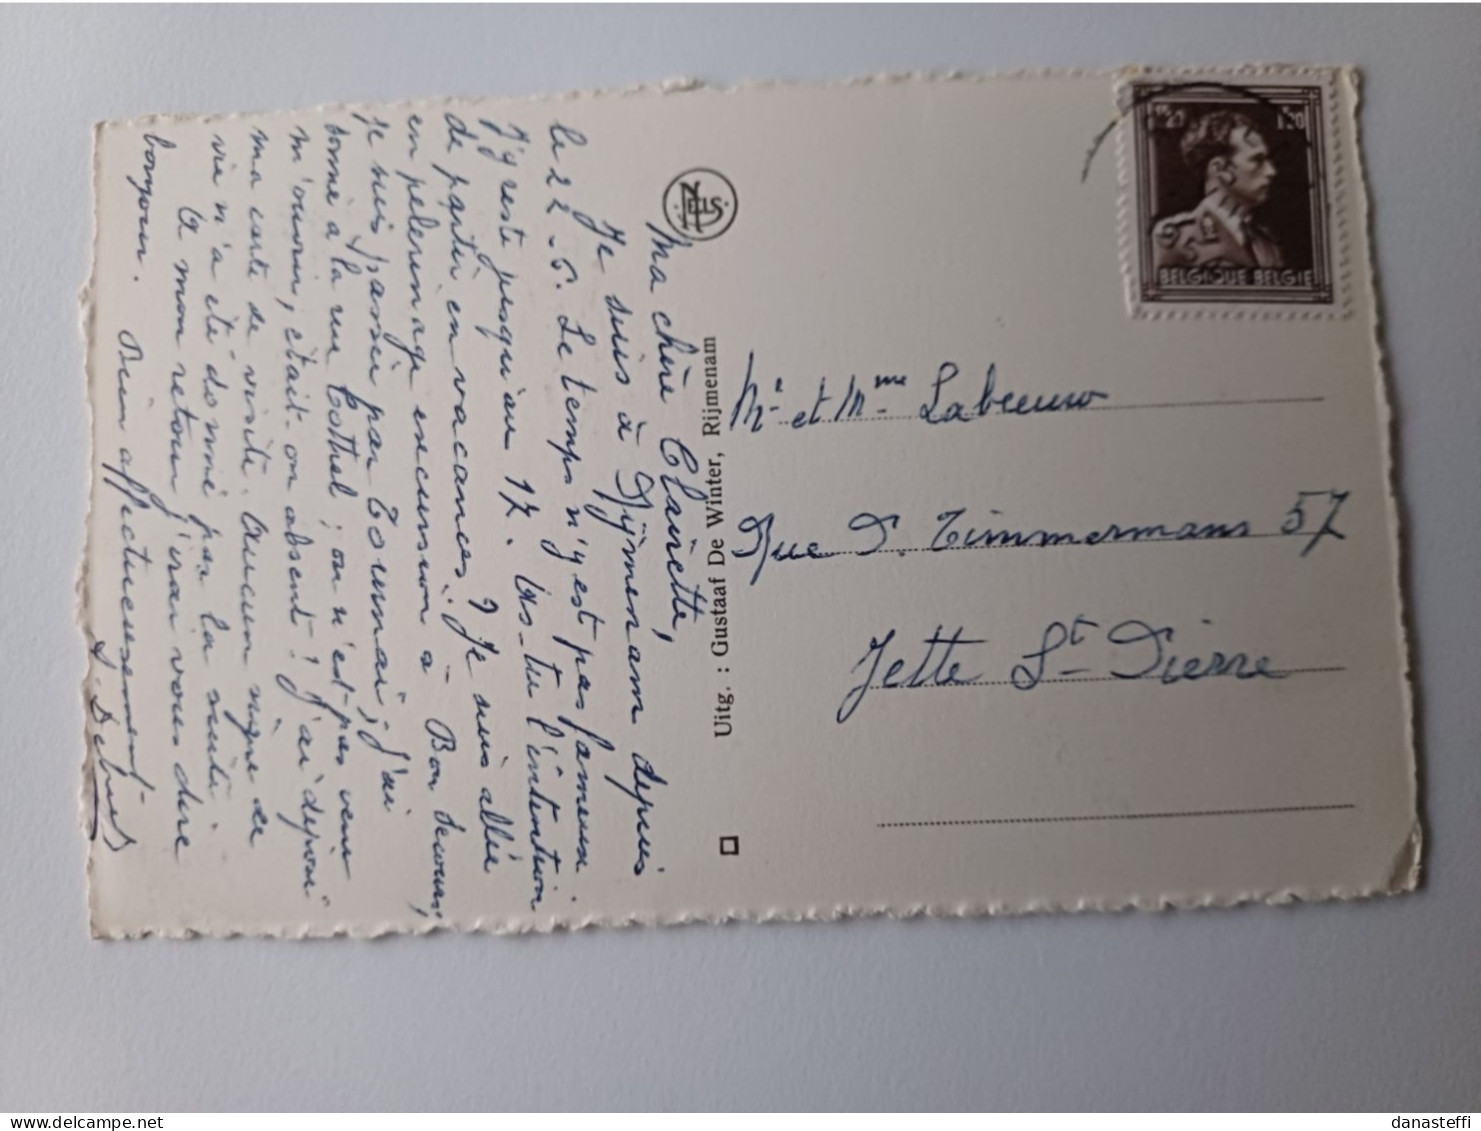 Ma chère Clairette,
Je suis à Rijmenam depuis
le 22-6. Le temps n'y est pas fameux.
J'y reste jusqu'au 17. As-tu l'intention
de partir en vacances ? Je suis allée
en pelerinage excursion à Bon Secours,
je suis passée par Tournai; j'ai
sonné à la rue ; on n'est pas venu
m'ouvrir, était-on absent ? J'ai déposé
ma carte de visite. Aucun signe de
vie n'a été donné par la suite.
A mon retour j'irai vous dire
bonjour. Bien affectueusement
NELS
Uitg. : Gustaaf De Winter, Rijmenam
1F20
BELGIQUE BELGIE
Mr et Mme Labeeuw
Rue F. Timmermans 57
Jette St Pierre
danasteffi